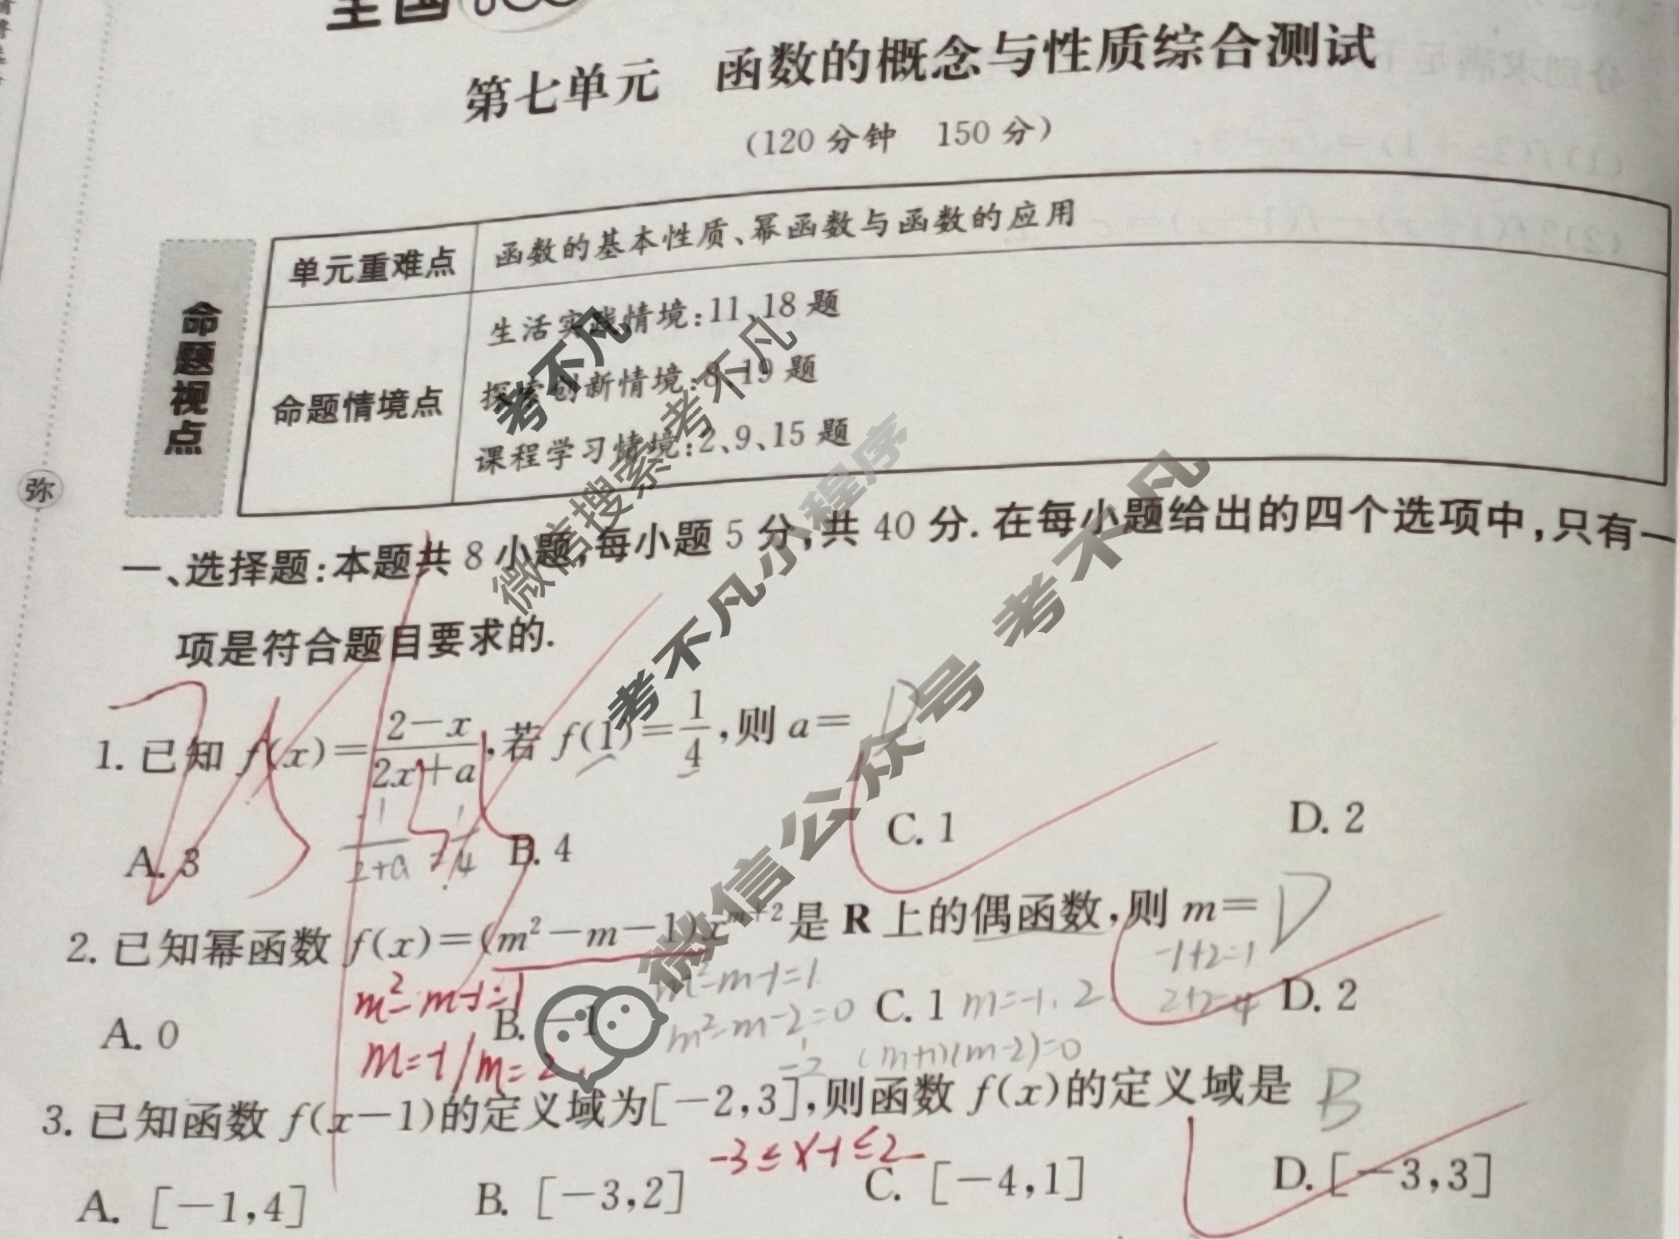 全国100
第七单元 函数的概念与性质综合测试
(120分钟 150分)
命题视点
单元重难点 函数的基本性质、幂函数与函数的应用
命题情境点
生活实践情境:11、18题
探索创新情境:8、19题
课程学习情境:2、9、15题
弥
一、选择题:本题共8小题,每小题5分,共40分.在每小题给出的四个选项中,只有一
项是符合题目要求的.
1.已知 f(x)=(2-x)/(2x+a),若 f(1)=1/4,则 a= D
1/(2+a)=1/4
A.3 B.4 C.1 D.2
2.已知幂函数 f(x)=(m²-m-1)x^(m+2)是 R 上的偶函数,则 m= D
m²-m-1=1
m²-m-1=1
-1+2=1
2+2=4
A.0 B.-1 C.1 D.2
m=-1,2
m²-m-2=0
(m+1)(m-2)=0
m=-1/m=2
3.已知函数 f(x-1)的定义域为[-2,3],则函数 f(x)的定义域是 B
-3≤x-1≤2
A.[-1,4] B.[-3,2] C.[-4,1] D.[-3,3]
考不凡
微信搜索 考不凡
考不凡小程序
微信公众号 考不凡